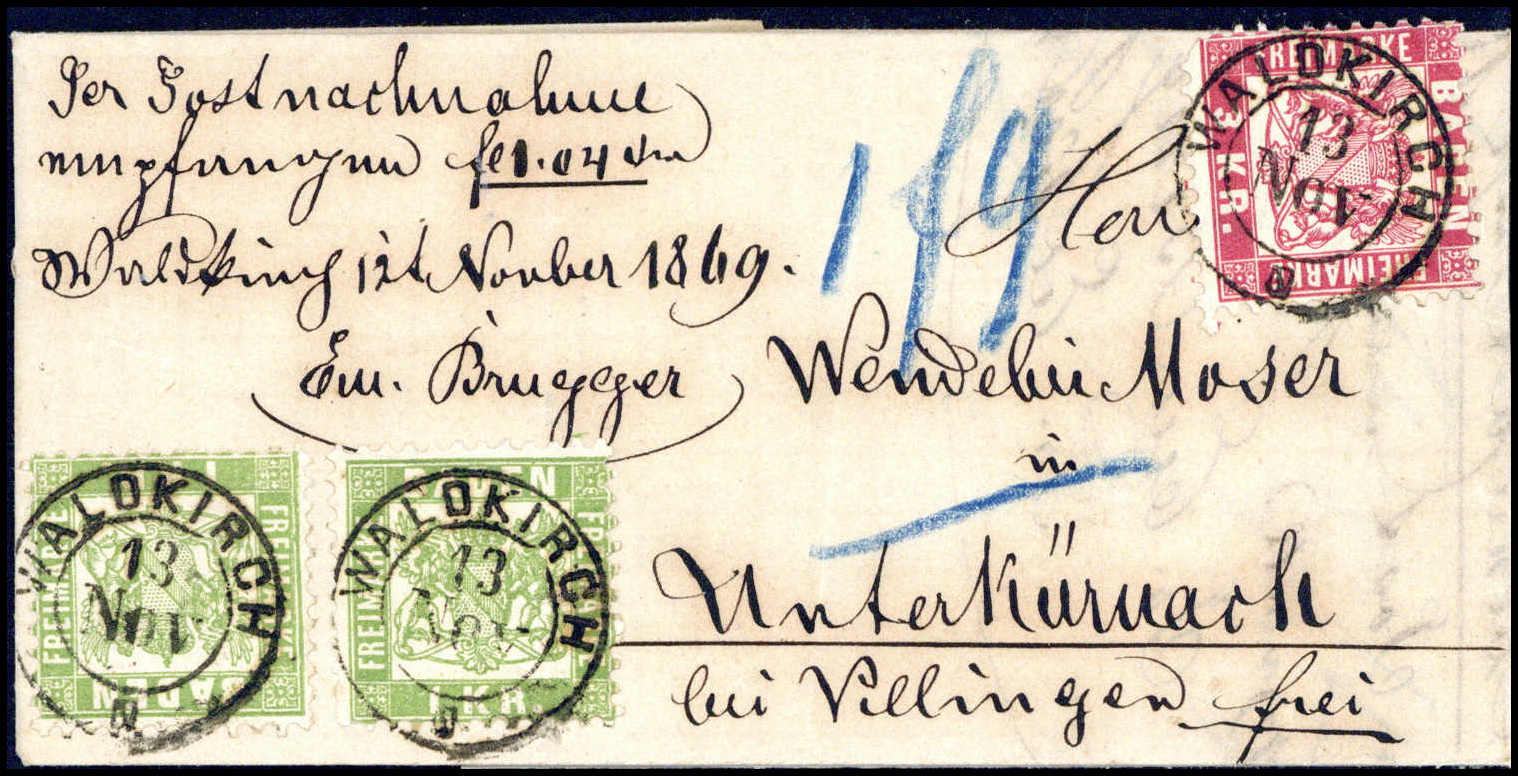 Per Postnachnahme
empfangen fl 1.04 xr
Waldkirch 12t November 1869.
Em. Brugger
1 f 9
Herr
Wendelin Moser
in
Unterkürnach
bei Villingen frei
FREIMARKE
BADEN
3 KR.
FREIMARKE
WALDKIRCH
13
NOV
FREIMARKE
BADEN
FREIMARKE
WALDKIRCH
13
NOV
BADEN
FREIMARKE
FREIMARKE
1 KR.
WALDKIRCH
13
NOV